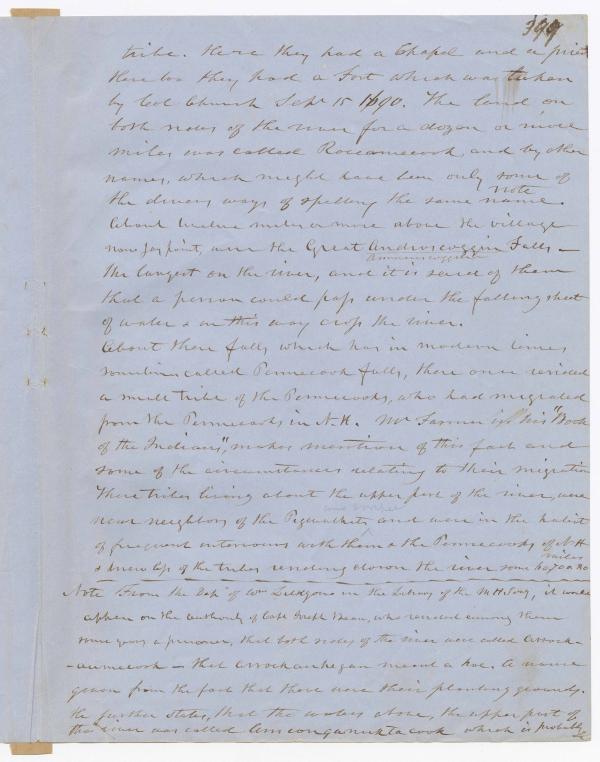 399
tribe. Here they had a Chapel and a priest
Here too they had a Fort which was taken
by Col Church Sept 15 1690. The land on
both sides of the river for a dozen or more
miles was called Roccamecook, and by other
names, which might have been only some of
the divers ways of spelling the same name.
note
About twelve miles or more above the village
now Jay point, were the Great Androscoggin Falls —
the largest on the river, and it is said of them
that a person could pass under the falling sheet
of water & in this way cross the river.
About these falls, which has in modern times
sometimes called Pennecook falls, there once resided
a small tribe of the Pennecooks, who had migrated
from the Pennecooks in N.H. Mr Farmer in his "Book
of the Indians", makes mention of this fact and
some of the circumstances relating to their migration
These tribes living about the upper part of the river, were
near neighbors of the Pequakets and were in the habit
of frequent intercourse with them & the Pennecooks of N.H
& knew less of the tribes residing down the river some 60 70 or 80
miles
Note From the of Wm in the Library of the M H Socy, it would
appear on the authority of Capt Joseph Bean, who resided among them
some years a prisoner, that both sides of the river were called Arrock-
-aumecook — that Arrockauhegan meant a hoe. A name
given from the fact that there were their planting grounds.
He further states, that the waters above, the upper part of
the river was called which is probably